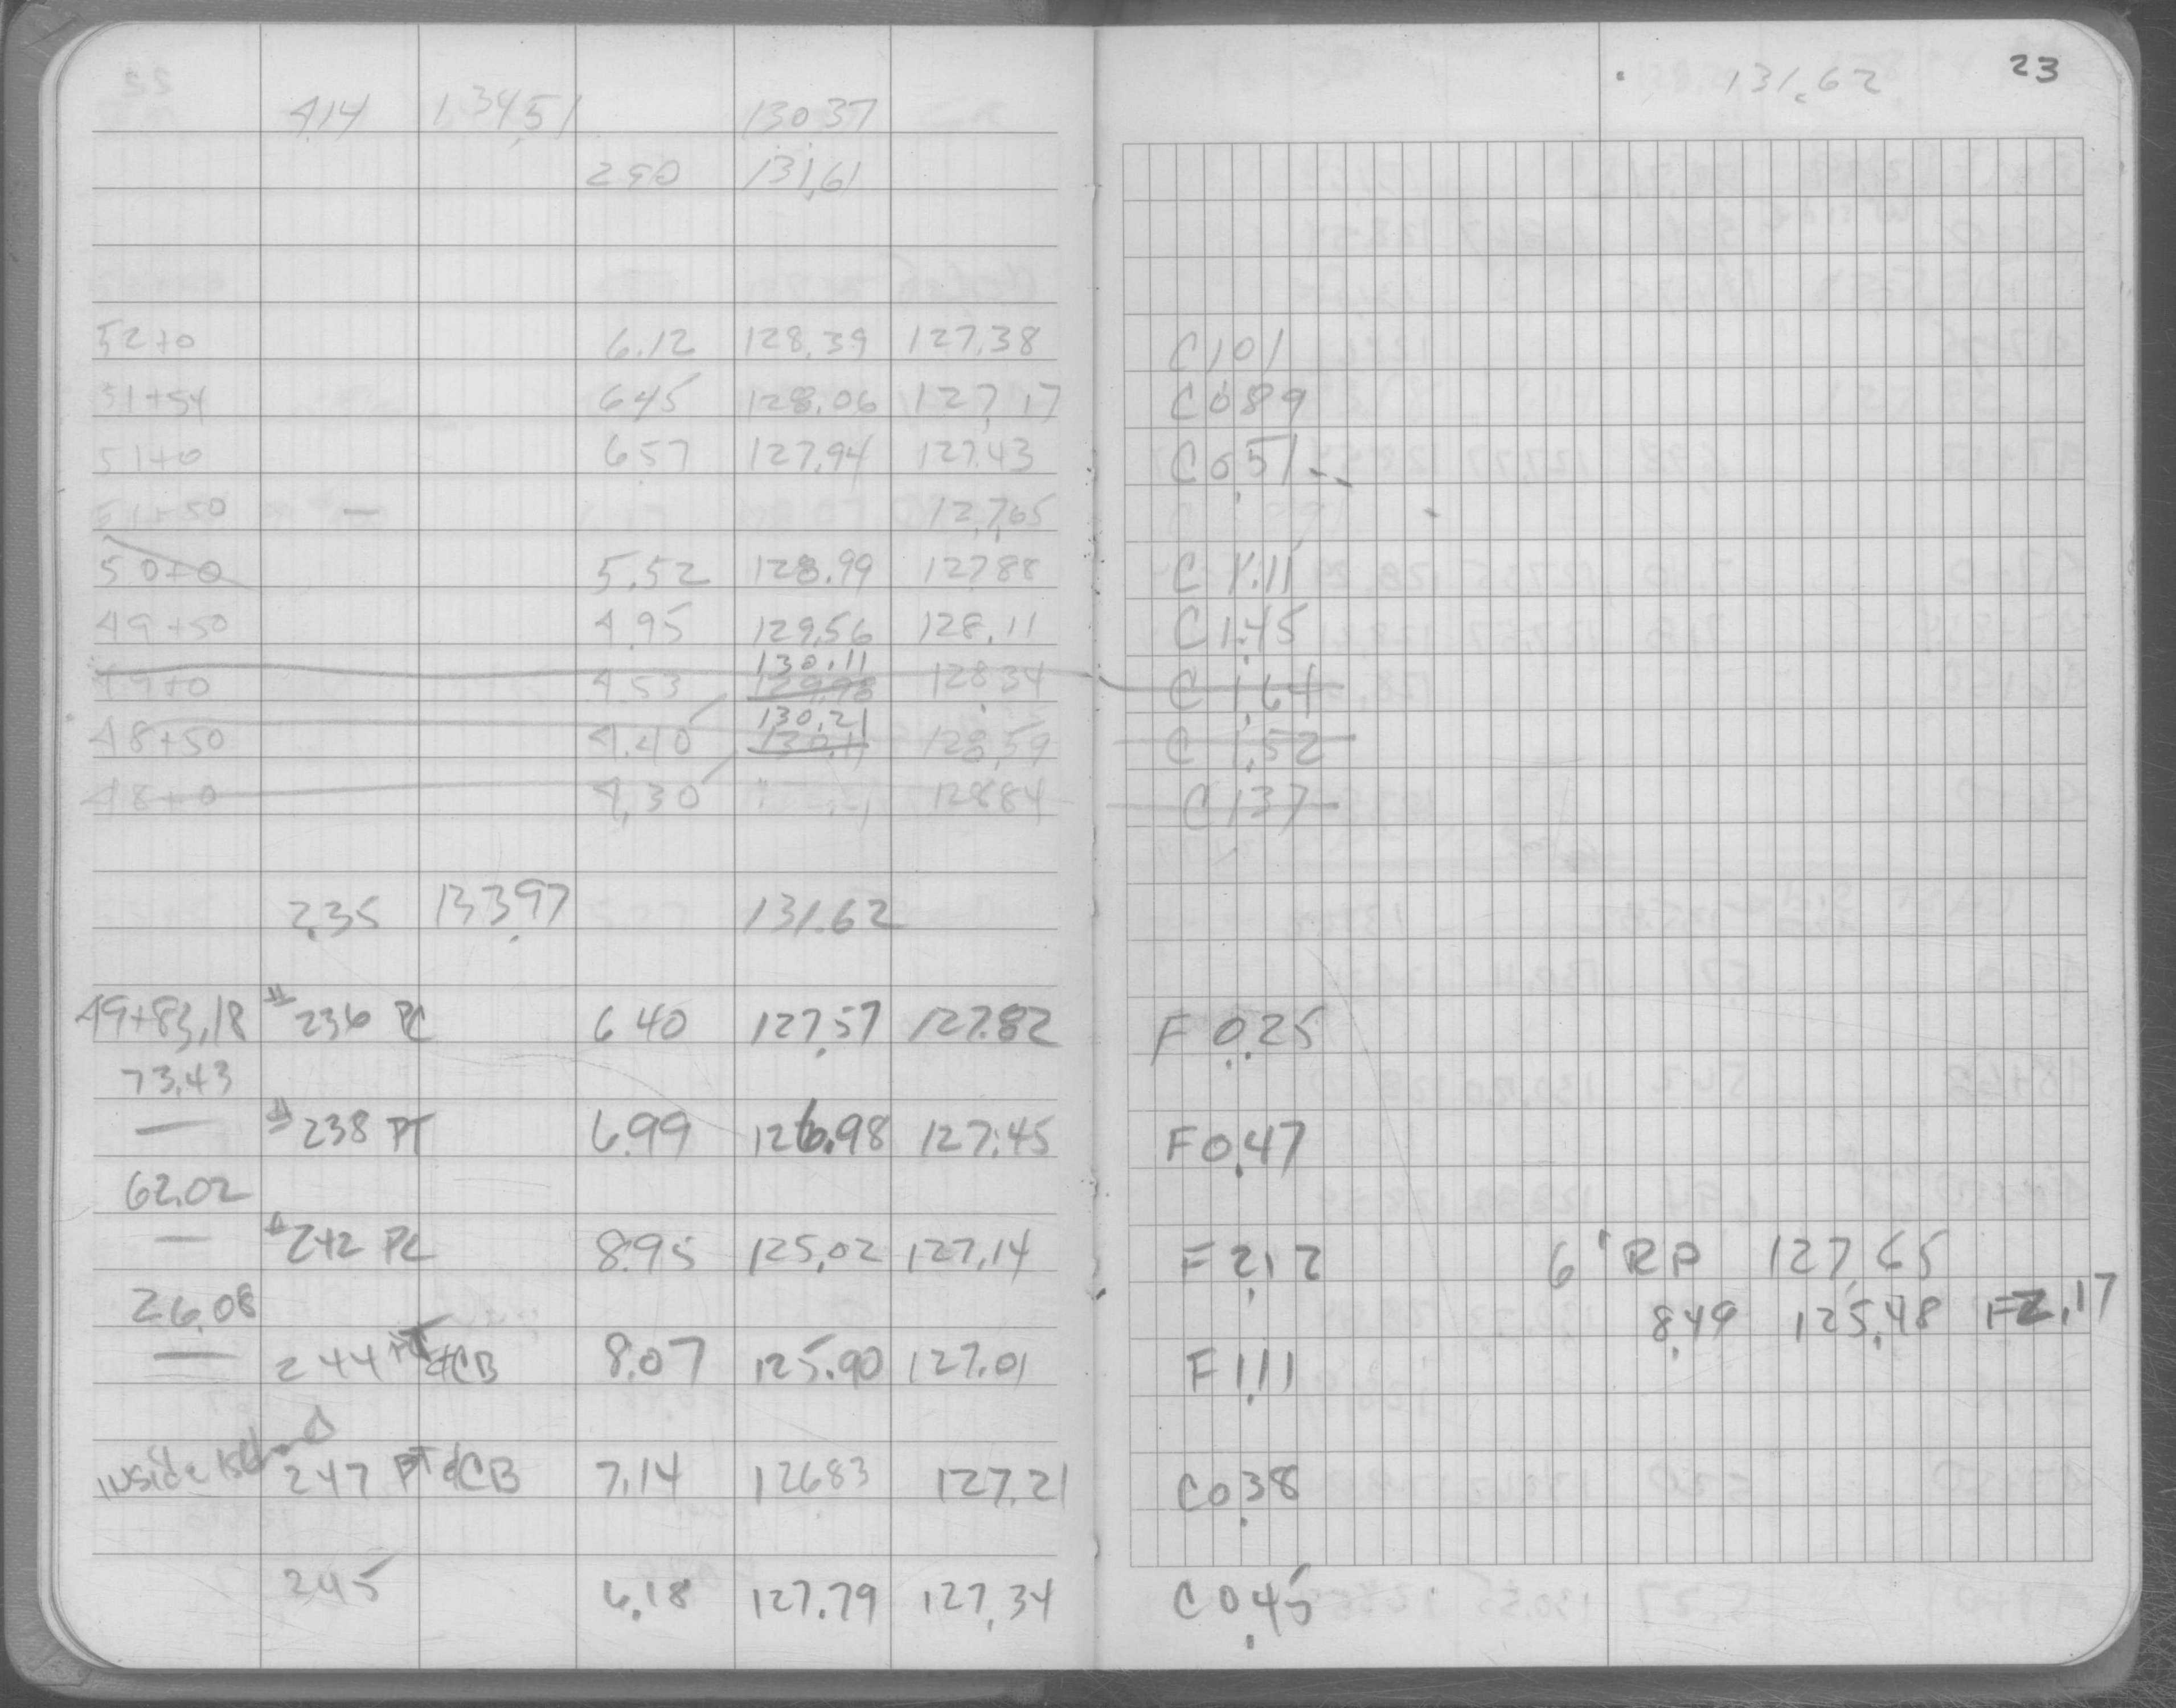 23
131.62
4.14 134.51 130.37
2.90 131.61
52+0 6.12 128.39 127.38 C 1.01
51+54 6.45 128.06 127.17 C 0.89
51+0 6.57 127.94 127.43 C 0.51
51+50 — 127.65
50+0 5.52 128.99 127.88 C 1.11
49+50 4.95 129.56 128.11 C 1.45
130.11
49+0 4.53 129.98 128.34 C 1.64
130.21
48+50 4.40 130.11 128.59 C 1.52
48+0 4.30 128.84 C 1.37
2.35 133.97 131.62
49+83.18 #236 PC 6.40 127.57 127.82 F 0.25
73.43
— #238 PT 6.99 126.98 127.45 F 0.47
62.02
— #242 PC 8.95 125.02 127.14 F 2.12 6' RP 127.65
26.08 8.49 125.48 F 2.17
— 244 PT & CB 8.07 125.90 127.01 F 1.11
Inside Island 247 PT & CB 7.14 126.83 127.21 C 0.38
245 6.18 127.79 127.34 C 0.45